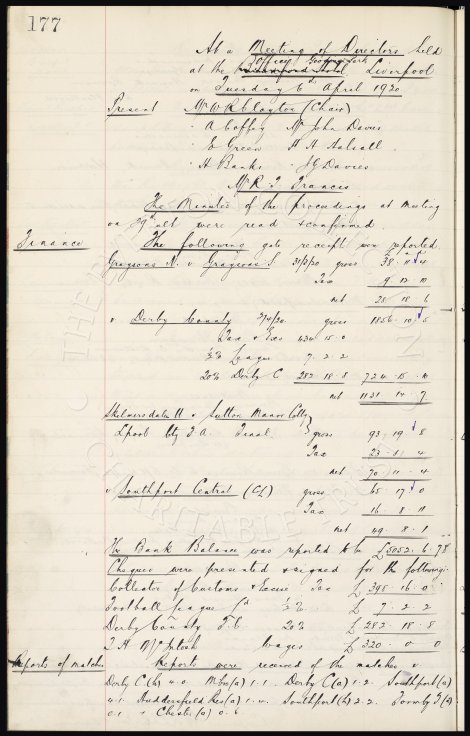 177
At a Meeting of Directors held
at the Offices Goodison Park Liverpool
on Tuesday 6th April 1920
Present Mr W R Clayton (Chair)
" A Coffey Mr John Davies
" E Green " H A Halsall
" H Banks " J G Davies
Mr R T Francis
The Minutes of the proceedings at meeting
on 29th ult were read & confirmed.
Finance The following gate receipts were reported.
Graysons N. v Graysons S. 31/3/20 gross 38 " 11 " 4
Tax 9 12 10
net 28 18 6
v Derby County 2/4/20 gross 1856 " 10 " 5
Tax & Exs 434 15 0
½% League 7 2 2
20% Derby C 282 " 18 " 8 724 " 15 " 10
net 1131 14 7
Skelmersdale U v Sutton Manor Colly
Lpool Cty F.A. Final gross 93 " 19 " 8
Tax 23 8 4
net 70 11 4
v Southport Central (CL) gross 65 17 0
Tax 16 8 11
net 49 8 1
The Bank Balance was reported to be £5052 . 6 . 7
Cheques were presented & signed for the following:
Collector of Customs & Excise Tax £ 395 " 16 " 0
Football League Ld ½% £ 7 " 2 " 2
Derby County F.C. 20% £ 282 " 18 " 8
T. H. McIntosh Wages £ 320 " 0 " 0
Reports of matches Reports were received of the matches v.
Derby C (h) 4.0 M Cy (a) 1.1. Derby C (a) 1.2. Southport (a)
4.1 Huddersfield Res (a) 1.0. Southport (h) 2.2. Formby (a)
0.1 v Chester (a) 0.6.